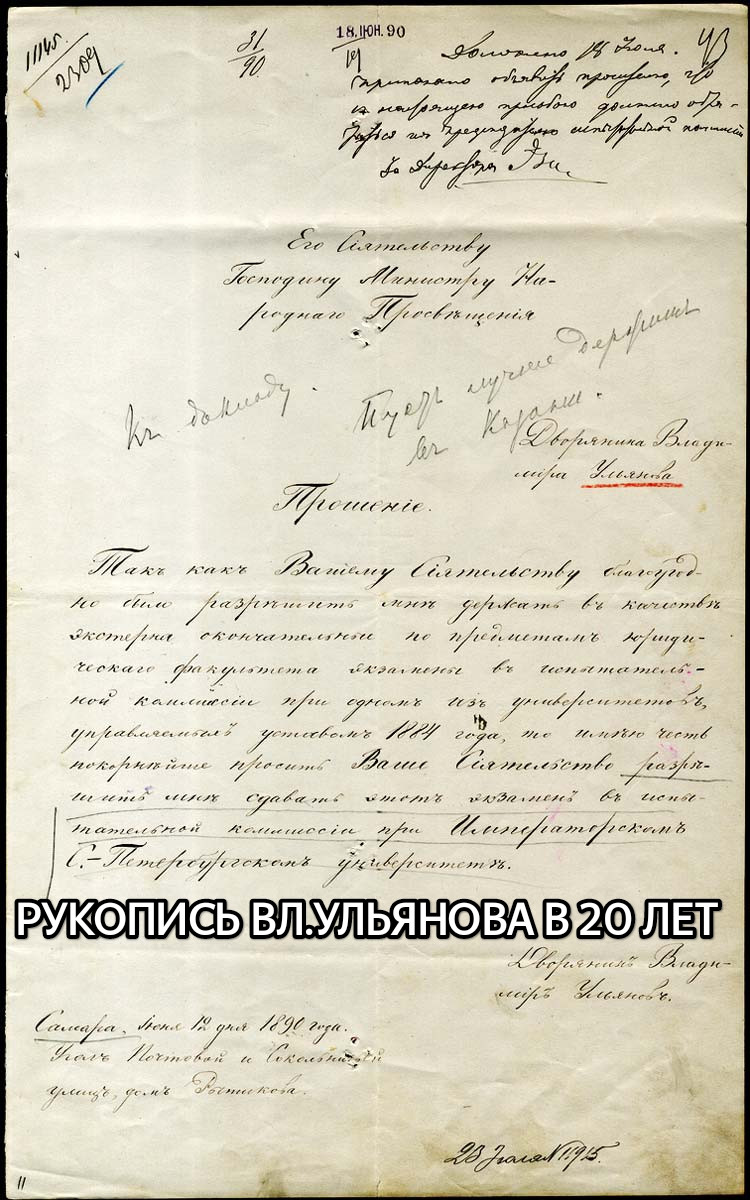 11145.
2309
31
90
18.ІЮН.90
19
43
Доложено 18 Іюля.
приказано объявить просителю, что
съ настоящею просьбою должно обра-
титься къ председателю испытательной комиссіи
За Директора
Его Сіятельству
Господину Министру На-
роднаго Просвѣщенія
Къ докладу.
Пусть лучше держитъ
въ Казани.
Дворянина Влади-
міра Ульянова
Прошеніе.
Такъ какъ Вашему Сіятельству благоугод-
но было разрѣшить мнѣ держать въ качествѣ
экстерна окончательные по предметамъ юриди-
ческаго факультета экзамены въ испытатель-
ной коммиссіи при одномъ изъ университетовъ,
управляемыхъ уставомъ 1884 года, то имѣю честь
покорнѣйше просить Ваше Сіятельство разрѣ-
шить мнѣ сдавать этотъ экзаменъ въ испы-
тательной коммиссіи при Императорскомъ
С.-Петербургскомъ университетѣ.
РУКОПИСЬ ВЛ.УЛЬЯНОВА В 20 ЛЕТ
Дворянинъ Влади-
міръ Ульяновъ.
Самара. Іюня 12 дня 1890 года.
Уголъ Почтовой и Сокольничьей
улицъ, домъ Рытикова.
23 Іюля N 11915.
11